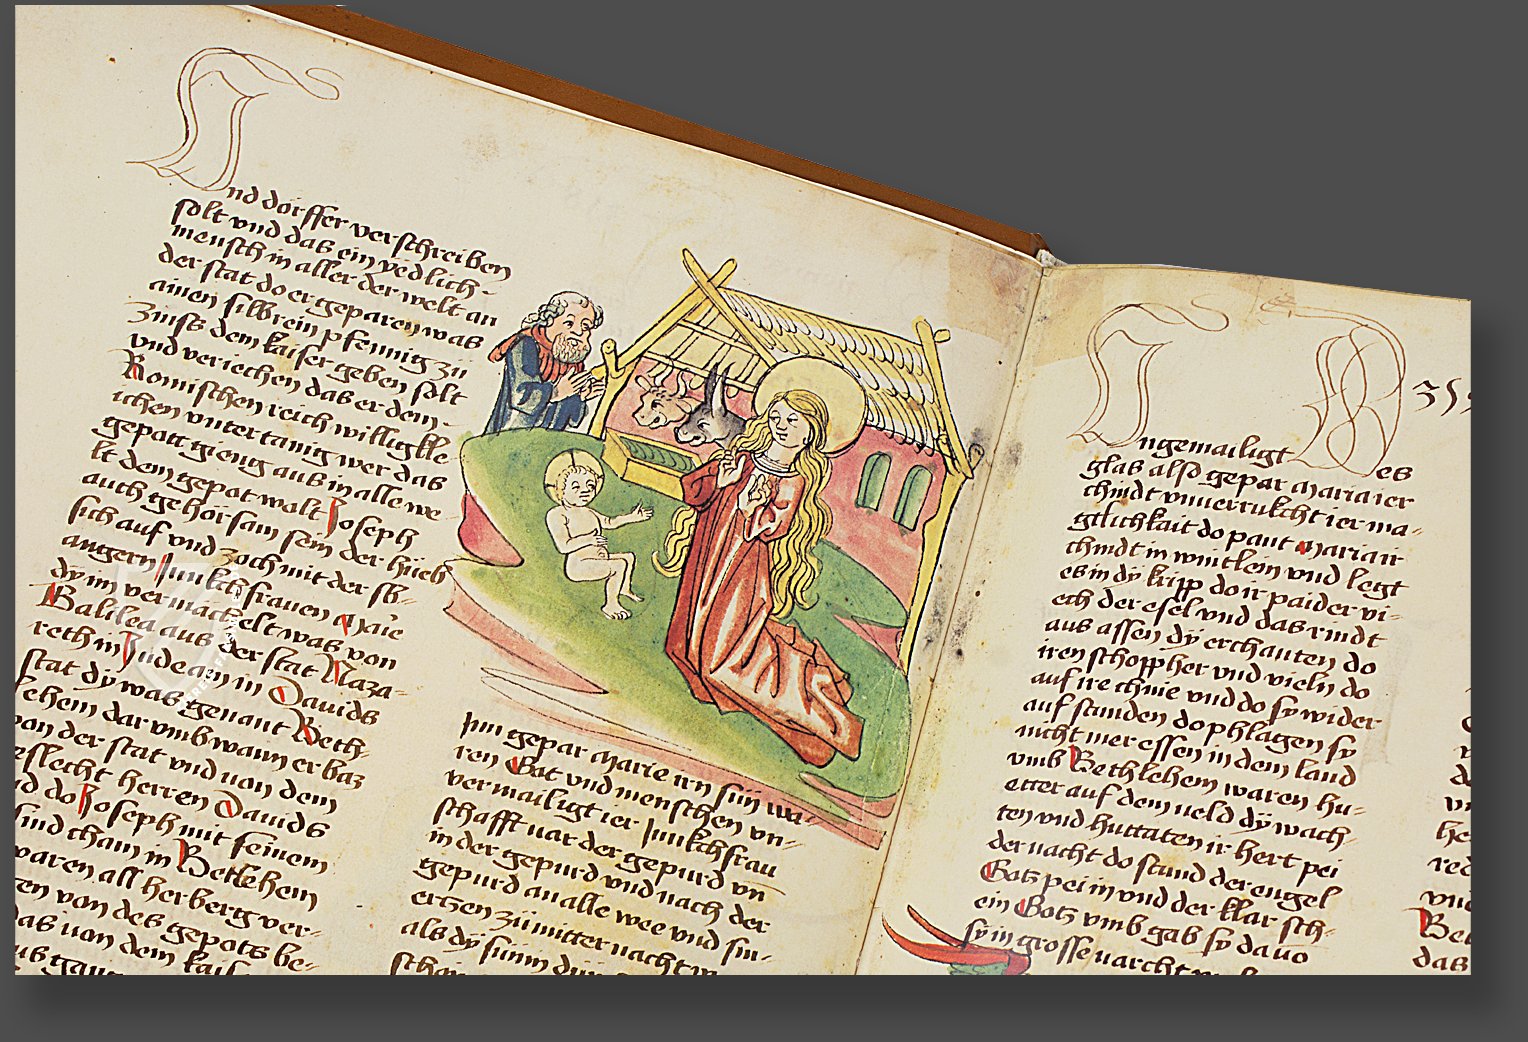 I
nd dörffer verschreiben
solt vnd das ein yedlich
mensch in aller der welt an
der stat do er geparen was
ainen silbrein pfennig zu
Zinss dem kaiser geben solt
vnd veriechen das er dem
Romischen reich willigkle
ichen vntertanig wer das
gepott gieng aus in alle we
lt dem gepot wolt Joseph
auch gehorsam sein der hueb
sich auf vnd zoch mit der sb
angern Junkchfrauen Marie
dy im vermachelt was von
Galilea aus der stat Naza-
reth in Judeam in Davids
stat dy was genant Beth-
lehem darvmb wann er baz
von der stat vnd von dem
geslecht herren Davids
vnd do Joseph mit seinem
kind cham in Betlehem
waren all herberg ver-
von des gepots be-
das von dem kais
aus
Jnn gepar Marie irn sun wa-
ren Got vnd menschen vn-
vermailigt ier Junkchfrau
schafft var der gepurd vn
in der gepurd vnd nach der
gepurd an alle wee vnd sm-
ertzen zu mitter nacht w
als dy sunn dur
schein
I
ngemailigt des
glas also gepar Maria ier
chindt vnverrukcht ier ma-
gtlichkait do pant Mariair
chindt in wintlein vnd legt
es in dy kripp do ir paider vi-
ech der esel vnd das rindt
aus assen dy erchanten do
iren schoppher vnd vieln do
auf ire chnie vnd do sy wider
auf stunden do phlagen sy
nicht mer essen in dem land
vmb Bethlehem waren hu-
etter auf dem veld dy wach-
ten vnd huttaten ir hert pei
der nacht do stund der engel
Gotz pei in vnd der klar sch-
ein Gotz vmb gab sy davo
sy in grosse varcht
he
red
vnd
Bet
das